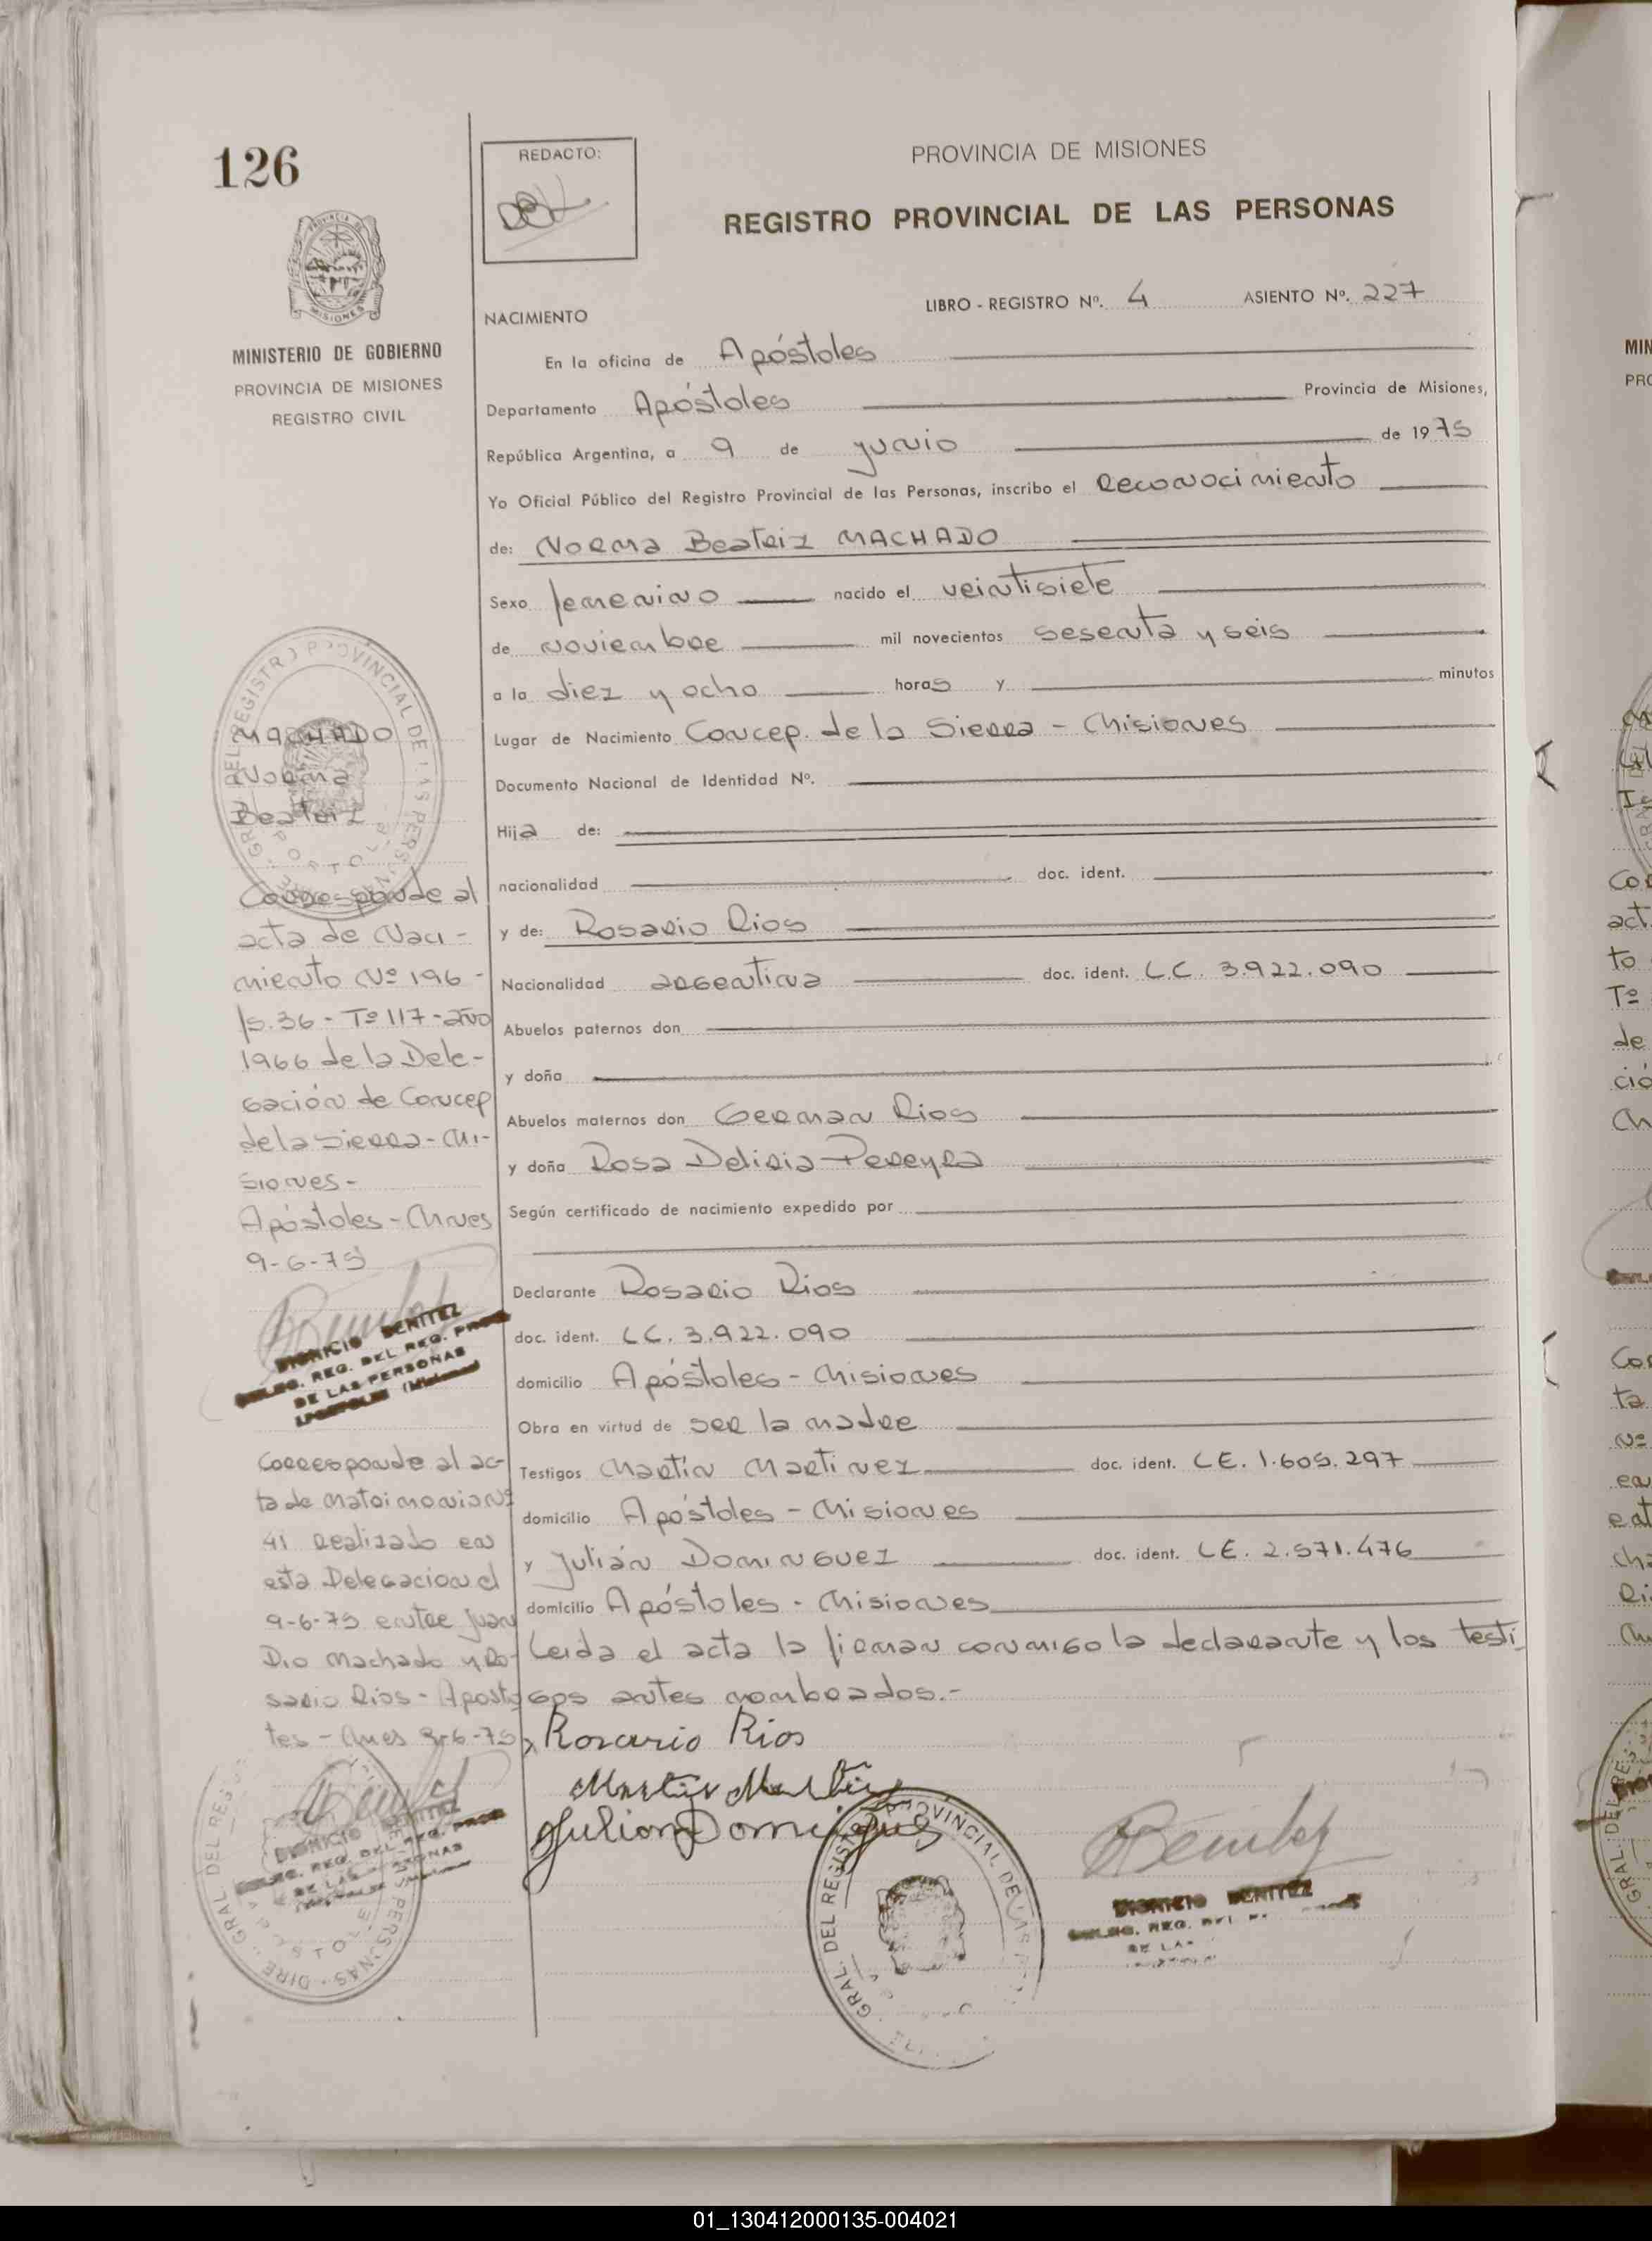 126
REDACTO:
PROVINCIA DE MISIONES
REGISTRO PROVINCIAL DE LAS PERSONAS
MINISTERIO DE GOBIERNO
PROVINCIA DE MISIONES
REGISTRO CIVIL
LIBRO - REGISTRO Nº. 4 ASIENTO Nº. 227
NACIMIENTO
En la oficina de Apóstoles
Departamento Apóstoles Provincia de Misiones,
República Argentina, a 9 de junio de 1975
Yo Oficial Público del Registro Provincial de las Personas, inscribo el Reconocimiento
de: Norma Beatriz MACHADO
Sexo femenino nacido el veintisiete
de noviembre mil novecientos sesenta y seis
a la diez y ocho horas y minutos
Lugar de Nacimiento Concep. de la Sierra - Misiones
Documento Nacional de Identidad Nº.
Hija de:
nacionalidad doc. ident.
y de: Rosario Rios
Nacionalidad argentina doc. ident. L.C. 3.922.090
Abuelos paternos don
y doña
Abuelos maternos don German Rios
y doña Rosa Delisia Pereyra
Según certificado de nacimiento expedido por
Declarante Rosario Rios
doc. ident. LC. 3.922.090
domicilio Apóstoles - Misiones
Obra en virtud de ser la madre
Testigos Martín Martinez doc. ident. LE. 1.605.297
domicilio Apóstoles - Misiones
y Julián Dominguez doc. ident. LE. 2.571.476
domicilio Apóstoles - Misiones
Leida el acta la firman conmigo la declarante y los testi
gos antes nombrados.-
Rosario Rios
Martin Martin
Julian Dominguez
Benitez
DIONICIO BENITEZ
MACHADO
Norma
Beatriz
Corresponde al
acta de Naci-
miento Nº 196-
fs.36 - Tº 117 - año
1966 de la Dele-
gación de Concep
de la Sierra - Mi-
siones-
Apóstoles - Mnes
9-6-75
Benitez
DIONICIO BENITEZ
REG. DEL REG. PROV.
DE LAS PERSONAS
APOSTOLES (Misiones)
Corresponde al ac-
ta de matrimonio Nº
41 realizado en
esta Delegacion el
9-6-75 entre Juan
Dio Machado y Ro-
sario Rios - Aposto
les - Mnes 9-6-75
Benitez
DIONICIO BENITEZ
01_130412000135-004021